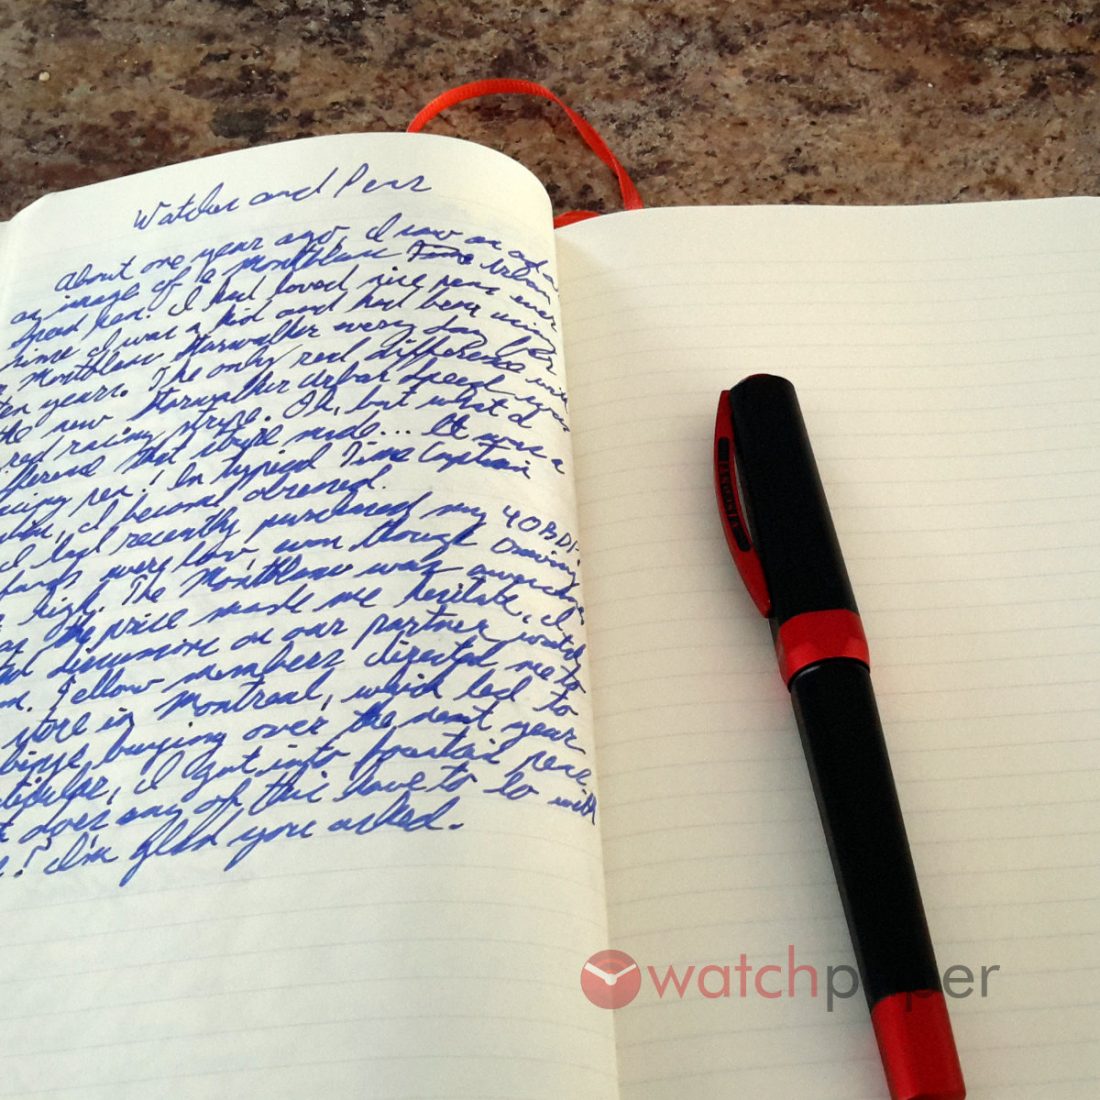 Watches and Pens
About one year ago, I saw an ad or
an image of a Montblanc Time Urban
Speed pen. I had loved nice pens ever
since I was a kid and had been using
Montblanc Starwalker every day for
ten years. The only real difference with
the new Starwalker Urban Speed was
red racing stripe. Oh, but what a
difference that stripe made... It was a
racing pen! In typical Time Captain
fashion, I became obsessed.
I had recently purchased my
funds were low, even though
high. The Montblanc was
as the price made me hesitate, I
discussion on our partner watch
Fellow members digested me to
store in Montreal, which led to
binge buying over the next year
I got into fountain pens
does any of this have to do with
? I'm glad you asked.
watchpaper